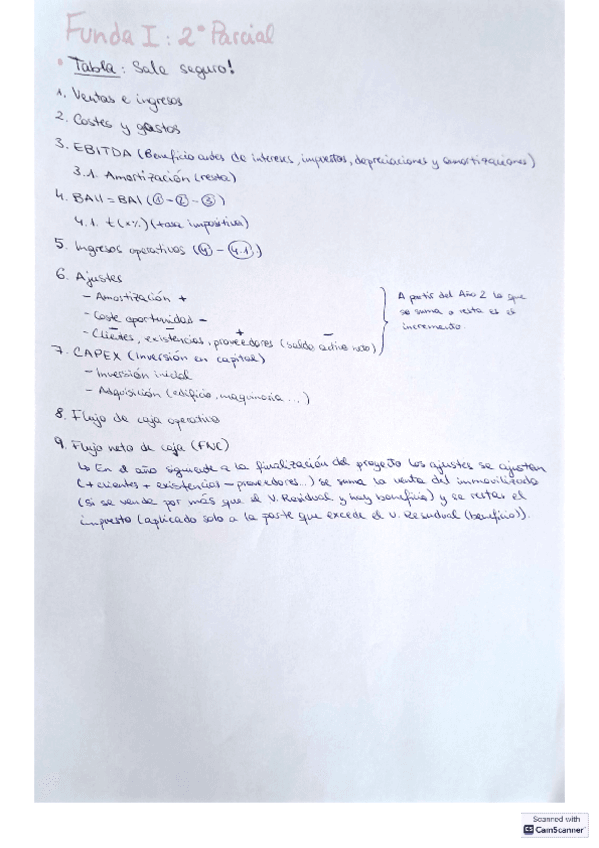 Funda I: 2º Parcial
• Tabla: Sale seguro!
1. Ventas e ingresos
2. Costes y gastos
3. EBITDA (Beneficio antes de intereses, impuestos, depreciaciones y amortizaciones)
3.1. Amortización (resta)
4. BAII = BAI (① - ② - ③)
4.1. t (x%) (tasa impositiva)
5. Ingresos operativos (④ - (4.1))
6. Ajustes
- Amortización +
- Coste oportunidad -
- Clientes, existencias, proveedores (saldo activo neto)
A partir del Año 2 lo que
se suma o resta es el
incremento.
7. CAPEX (Inversión en capital)
- Inversión inicial
- Adquisición (edificio, maquinaria...)
8. Flujo de caja operativo
9. Flujo neto de caja (FNC)
↳ En el año siguiente a la finalización del proyecto los ajustes se ajustan
(+ clientes + existencias - proveedores...) se suma la venta del inmovilizado
(si se vende por más que el V. Residual y hay beneficio) y se restar el
impuesto (aplicado solo a la parte que excede el V. Residual (beneficio)).
Scanned with
CamScanner